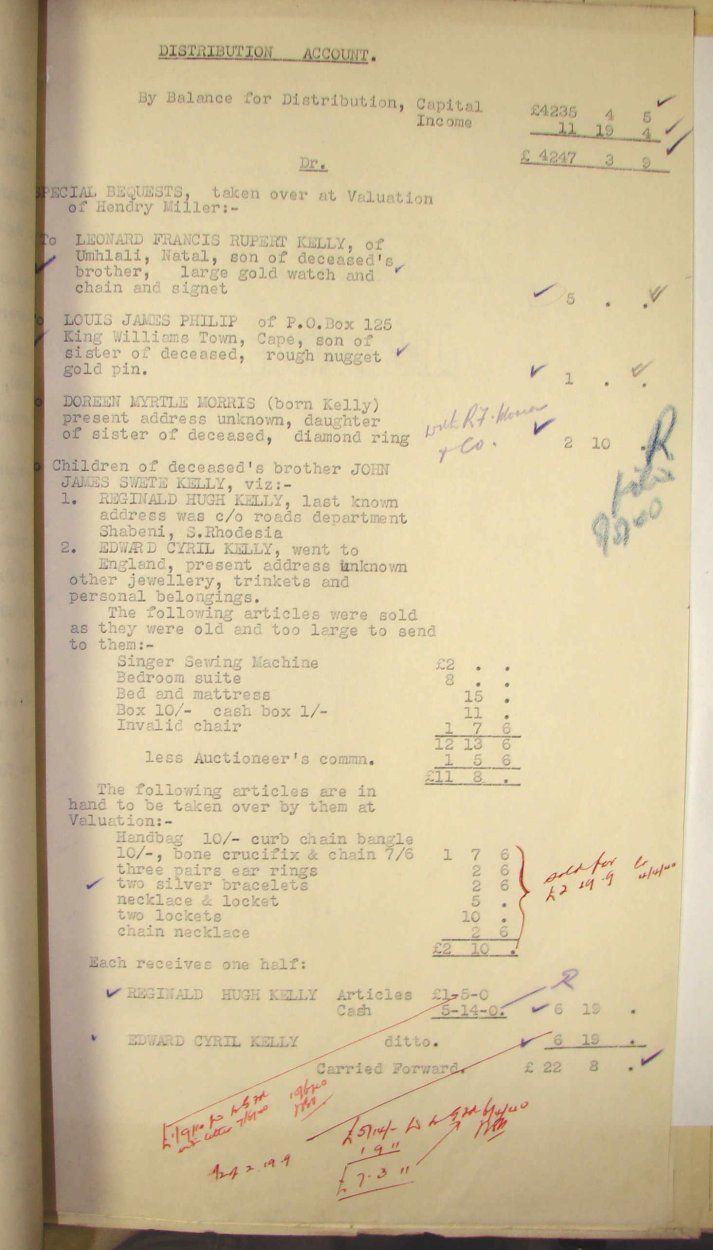 DISTRIBUTION ACCOUNT.
By Balance for Distribution, Capital £4235 4 5
Income 11 19 4
£ 4247 3 9
Dr.
SPECIAL BEQUESTS, taken over at Valuation
of Hendry Miller:-
To LEONARD FRANCIS RUPERT KELLY, of
Umhlali, Natal, son of deceased's
brother, large gold watch and
chain and signet 5 . .
LOUIS JAMES PHILIP of P.O.Box 125
King Williams Town, Cape, son of
sister of deceased, rough nugget
gold pin. 1 . .
DOREEN MYRTLE MORRIS (born Kelly)
present address unknown, daughter
of sister of deceased, diamond ring 2 10 .
with R.F.
& Co.
R
Children of deceased's brother JOHN
JAMES SWETE KELLY, viz:-
1. REGINALD HUGH KELLY, last known
address was c/o roads department
Shabeni, S.Rhodesia
2. EDWARD CYRIL KELLY, went to
England, present address unknown
other jewellery, trinkets and
personal belongings.
The following articles were sold
as they were old and too large to send
to them:-
Singer Sewing Machine £2 . .
Bedroom suite 8 . .
Bed and mattress 15 .
Box 10/- cash box 1/- 11 .
Invalid chair 1 7 6
12 13 6
less Auctioneer's commn. 1 5 6
£11 8 .
The following articles are in
hand to be taken over by them at
Valuation:-
Handbag 10/- curb chain bangle
10/-, bone crucifix & chain 7/6 1 7 6
three pairs ear rings 2 6
two silver bracelets 2 6
necklace & locket 5 .
two lockets 10 .
chain necklace 2 6
£2 10 .
sold for
£2 19.9
4/4/40
Each receives one half:
REGINALD HUGH KELLY Articles £1-5-0
Cash 5-14-0. 6 19 .
R
EDWARD CYRIL KELLY ditto. 6 19 .
Carried Forward. £ 22 8 .
£5/14/-
1 9 "
£ 7.3 "
½ of 2.19.9